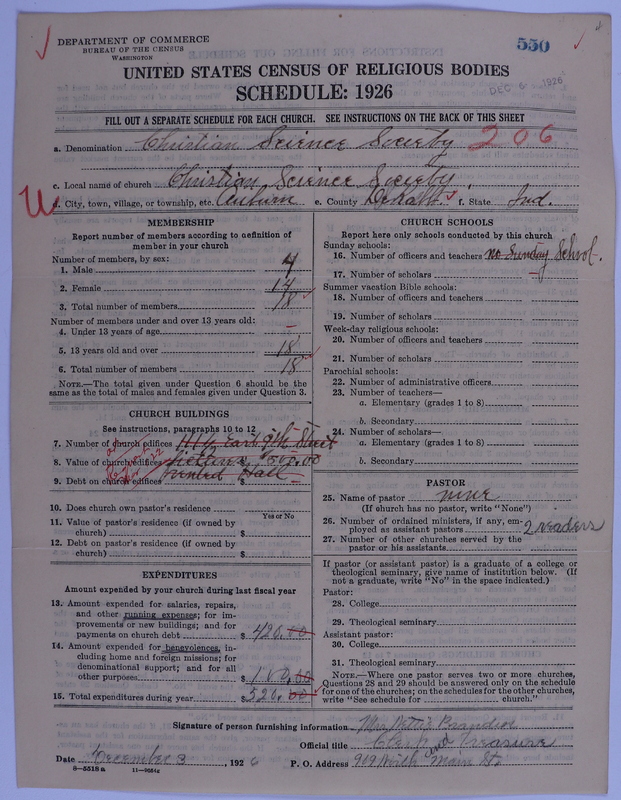 DEPARTMENT OF COMMERCE
BUREAU OF THE CENSUS
WASHINGTON
550
UNITED STATES CENSUS OF RELIGIOUS BODIES
DEC 6 1926
SCHEDULE: 1926
FILL OUT A SEPARATE SCHEDULE FOR EACH CHURCH. SEE INSTRUCTIONS ON THE BACK OF THIS SHEET
a. Denomination Christian Science Society 206
c. Local name of church Christian Science Society
d. City, town, village, or township, etc. Auburn e. County Dekalb f. State Ind.
MEMBERSHIP
Report number of members according to definition of
member in your church
Number of members, by sex:
1. Male 4
2. Female 14
3. Total number of members 18
Number of members under and over 13 years old:
4. Under 13 years of age –
5. 13 years old and over 18
6. Total number of members 18
NOTE.—The total given under Question 6 should be the
same as the total of males and females given under Question 3.
CHURCH BUILDINGS
See instructions, paragraphs 10 to 12
7. Number of church edifices East 9th Street
8. Value of church edifices $500.00
9. Debt on church edifices rented Hall
10. Does church own pastor's residence
Yes or No
11. Value of pastor's residence (if owned by
church) $
12. Debt on pastor's residence (if owned by
church) $
EXPENDITURES
Amount expended by your church during last fiscal year
13. Amount expended for salaries, repairs,
and other running expenses; for im-
provements or new buildings; and for
payments on church debt $ 420.00
14. Amount expended for benevolences, in-
cluding home and foreign missions; for
denominational support; and for all
other purposes $ 100.00
15. Total expenditures during year $ 520.00
CHURCH SCHOOLS
Report here only schools conducted by this church
Sunday schools:
16. Number of officers and teachers no Sunday School.
17. Number of scholars –
Summer vacation Bible schools:
18. Number of officers and teachers
19. Number of scholars
Week-day religious schools:
20. Number of officers and teachers
21. Number of scholars
Parochial schools:
22. Number of administrative officers
23. Number of teachers—
a. Elementary (grades 1 to 8)
b. Secondary
24. Number of scholars—
a. Elementary (grades 1 to 8)
b. Secondary
PASTOR
25. Name of pastor none
(If church has no pastor, write "None")
26. Number of ordained ministers, if any, em-
ployed as assistant pastors 2 readers
27. Number of other churches served by the
pastor or his assistants
If pastor (or assistant pastor) is a graduate of a college or
theological seminary, give name of institution below. (If
not a graduate, write "No" in the space indicated.)
Pastor:
28. College
29. Theological seminary
Assistant pastor:
30. College
31. Theological seminary
NOTE.—Where one pastor serves two or more churches,
Questions 28 and 29 should be answered only on the schedule
for one of the churches; on the schedules for the other churches,
write "See schedule for church."
Signature of person furnishing information Mrs
Official title Clerk and Treasure
Date December 3, 1926 P. O. Address 909 North Main St.
8—5518 a 11—9084